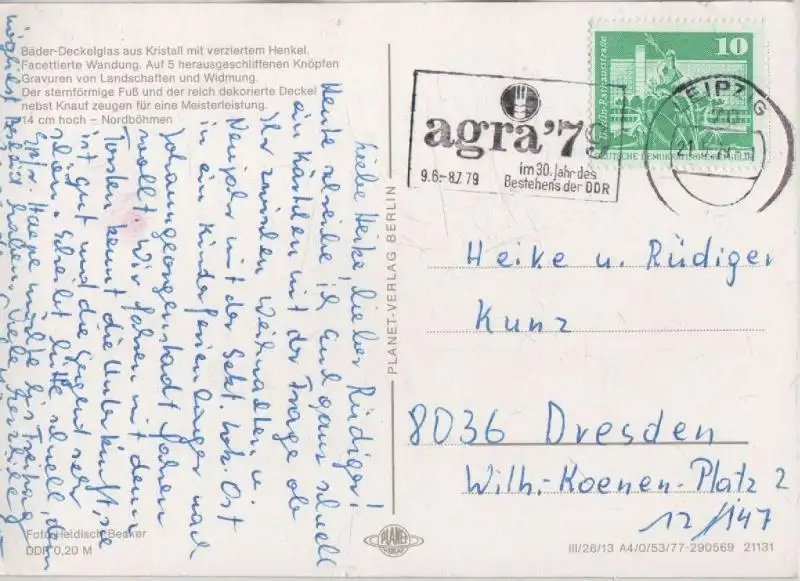 Bäder-Deckelglas aus Kristall mit verziertem Henkel.
Facettierte Wandung. Auf 5 herausgeschliffenen Knöpfen
Gravuren von Landschaften und Widmung.
Der sternförmige Fuß und der reich dekorierte Deckel
nebst Knauf zeugen für eine Meisterleistung.
14 cm hoch – Nordböhmen
Liebe Heike, lieber Rüdiger!
Heute schreibe ich auch ganz schnell
ein Kärtchen mit der Frage ob
Ihr zwischen Weihnachten u.
Neujahr mit der Sekt. Lok. Ost
in ein Kinderferienlager nach
Johanngeorgenstadt fahren
wollt. Wir fahren mit dem
Torsten kennt die Unterkunft, sie
ist gut und die Gegend sehr
schön. Schreibt bitte schnell, denn
Harpe möchte bis Freitag
möglichst Bescheid haben. Viele
Foto: Heidisch-Becker
DDR 0,20 M
PLANET-VERLAG BERLIN
PLANET
VERLAG
agra'79
9.6.–8.7.79
im 30. Jahr des
Bestehens der DDR
LEIPZIG
10
DEUTSCHE DEMOKRATISCHE REPUBLIK
Heike u. Rüdiger
Kunz
8036 Dresden
Wilh.-Koenen-Platz 2
12/147
III/26/13 A4/0/53/77-290569 21131